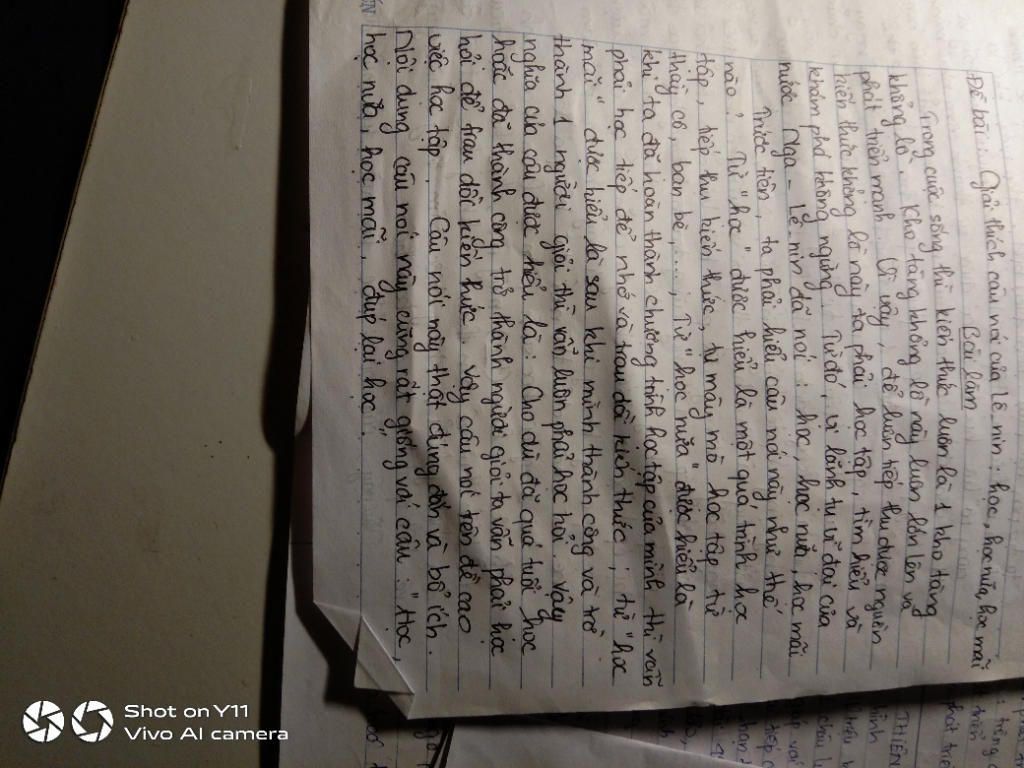 Đề bài: Giải thích câu nói của Lê nin: học, học nữa, học mãi
Bài làm
Trong cuộc sống thì kiến thức luôn là 1 kho tàng
khổng lồ. Kho tàng khổng lồ này luôn lớn lên và
phát triển mạnh. Vì vậy, để luôn tiếp thu được nguồn
kiến thức khổng lồ này ta phải học tập, tìm hiểu và
khám phá không ngừng. Từ đó, vị lãnh tụ vĩ đại của
nước Nga - Lê nin đã nói: học, học nữa, học mãi
Trước tiên, ta phải hiểu câu nói này như thế
nào? Từ "học" được hiểu là một quá trình học
tập, tiếp thu kiến thức, tự mày mò học tập từ
thầy cô, bạn bè,...., Từ "học nữa" được hiểu là
khi ta đã hoàn thành chương trình học tập của mình thì vẫn
phải học tiếp để nhớ và trau dồi kiến thức; từ "học
mãi" được hiểu là sau khi mình thành công và trở
thành 1 người giỏi thì vẫn luôn phải học hỏi. Vậy
nghĩa của câu được hiểu là: Cho dù đã quá tuổi học
hoặc đã thành công trở thành người giỏi ta vẫn phải học
hỏi để trau dồi kiến thức. Vậy câu nói trên đề cao
việc học tập. Câu nói này thật đúng đắn và bổ ích.
Nội dung câu nói này cũng rất giống với câu: "Học,
học nữa, học mãi, đúp lại học"
Shot on Y11
Vivo AI camera